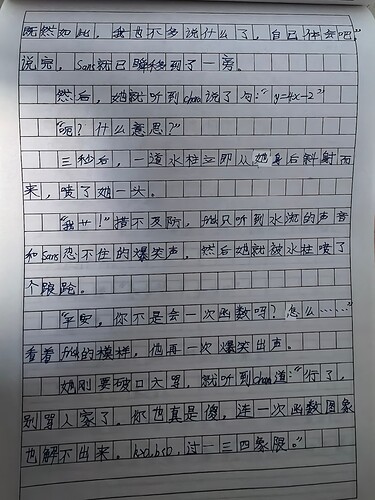 既然如此，我也不多说什么了，自己体会吧。”
说完，Sans就已瞬移到了一旁。
然后，她就听到chara说了句：“y=4x-2”
“呃？什么意思？”
三秒后，一道水柱立即从她身后斜射而
来，喷了她一头。
“我艹！”措不及防，frisk只听到水流的声音
和Sans忍不住的爆笑声。然后她就被水柱喷了
个踉跄。
“平案，你不是会一次函数吗？怎么……”
看着frisk的模样，他再一次爆笑出声。
她刚要破口大骂，就听到chara道：“行了，
别骂人家了。你也真是傻，连一次函数图象
也解不出来。k>0,b<0，过一三四象限。”